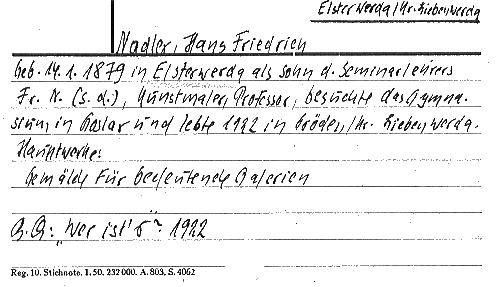 Elsterwerda/Kr. Liebenwerda
Nadler, Hans Friedrich
Geb. 14.1.1879 in Elsterwerda als Sohn d. Seminarlehrers
Fr. N. (s.d.), Kunstmaler, Professor, besuchte das Gymna-
sium, in Goslar und lebte 1922 in Gröden/Kr. Liebenwerda.
Hauptwerke:
Gemälde für bedeutende Galerien
"Wer ist's" 1922
Reg. 10. Stichnote. 1. 50. 232000. A. 803. S. 4062